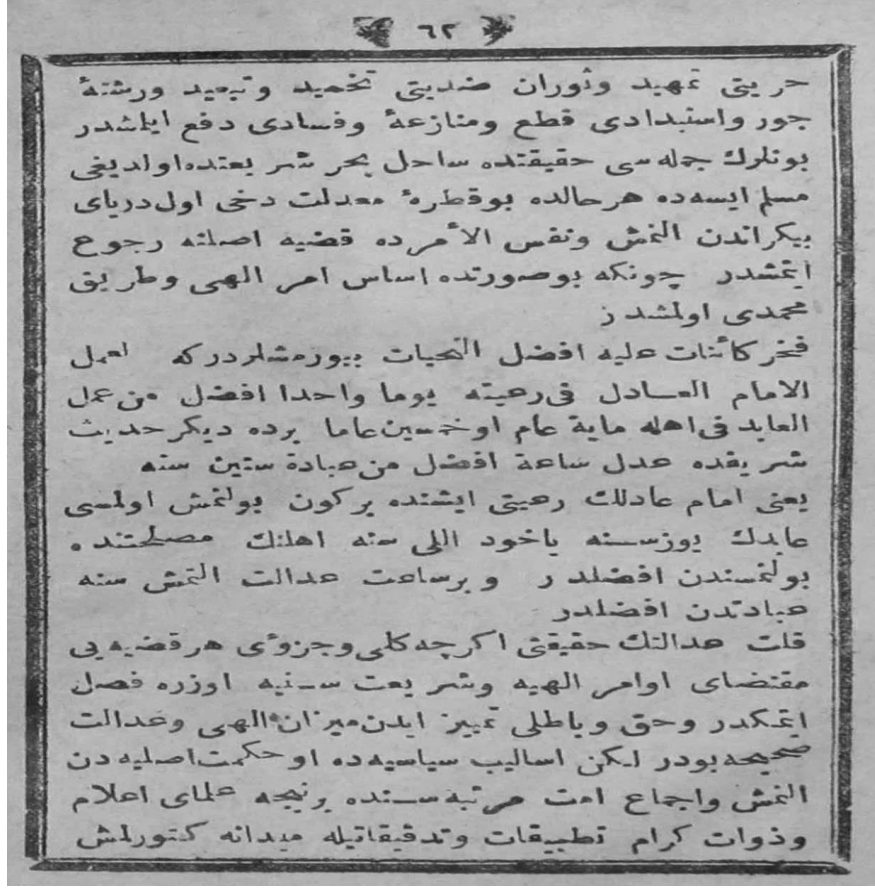 ٦٢
حریتی تمهید وثوران ضدیتی تخمید وتبعید ورشتهٔ
جور واستبدادی قطع ومنازعهٔ وفسادی دفع ایلمشدر
بونلرك جمله سی حقیقتده ساحل بحر شریعتده اولدیغی
مسلم ایسه ده هر حالده بوقطرهٔ معدلت دخی اول دریای
بیکراندن النمش ونفس الأمرده قضیه اصلنه رجوع
ایتمشدر چونکه بوصورتده اساس امر الهی وطریق
محمدی اولمشدر
فخر کائنات علیه افضل التحیات بیورمشلردرکه لعمل
الامام العادل فی رعیته یوما واحدا افضل من عمل
العابد فی اهله مایة عام او خمسین عاما برده دیکر حدیث
شریفده عدل ساعة افضل من عبادة ستین سنه
یعنی امام عادلك رعیتی ایشنده برکون بولنمش اولمسی
عابدك یوز سنه یاخود اللی سنه اهلنك مصلحتنده
بولنمسندن افضلدر وبرساعت عدالت التمش سنه
عبادتدن افضلدر
قلت عدالتك حقیقتی اکرچه کلی وجزوئی هرقضیه یی
مقتضای اوامر الهیه وشریعت سنیه اوزره فصل
ایتمکدر وحق وباطلی تمییز ایدن میزان الهی وعدالت
صحیحه بودر لکن اسالیب سیاسیه ده او حکمت اصلیه دن
النمش واجماع امت مرتبه سنده برنیجه علمای اعلام
وذوات کرام تطبیقات وتدقیقاتیله میدانه کتورلمش